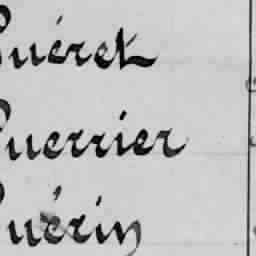 Guéret
Guerrier
Guérin